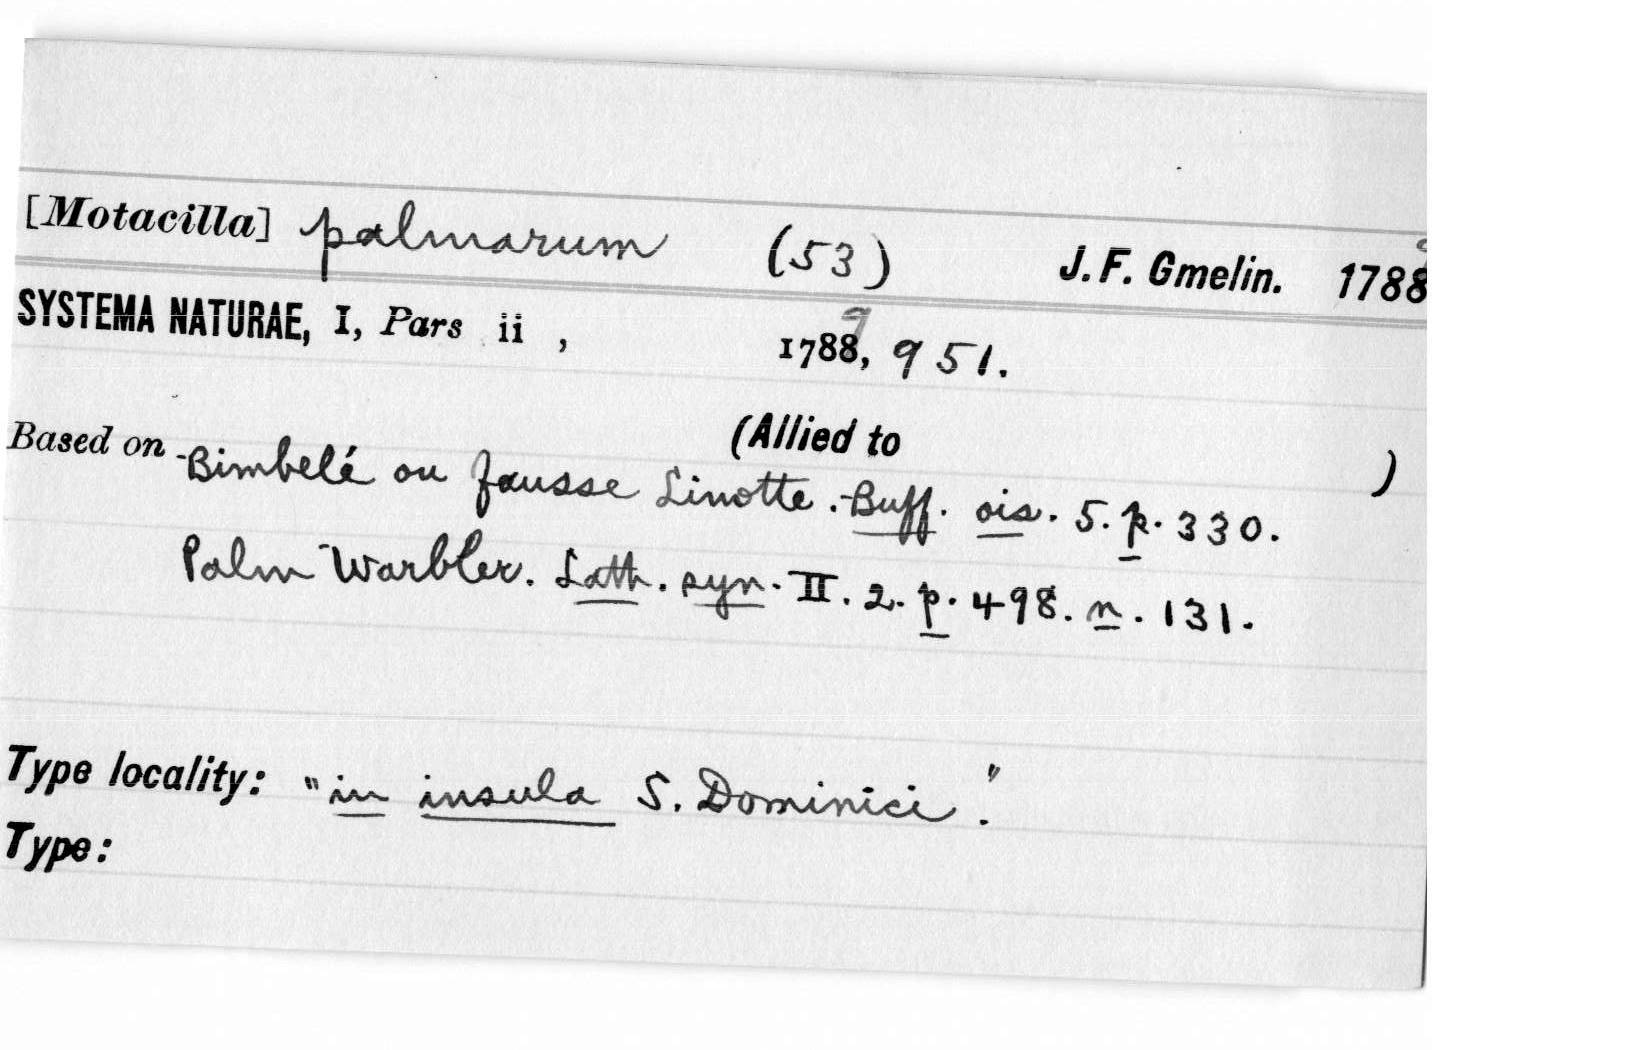 [Motacilla] palmarum (53) J. F. Gmelin. 1788 9
SYSTEMA NATURAE, I, Pars ii , 1788 9, 951.
(Allied to )
Based on Bimbelé ou fausse Linotte. Buff. ois. 5. p. 330.
Palm Warbler. Lath. syn. II. 2. p. 498. n. 131.
Type locality: "in insula S. Dominici."
Type: